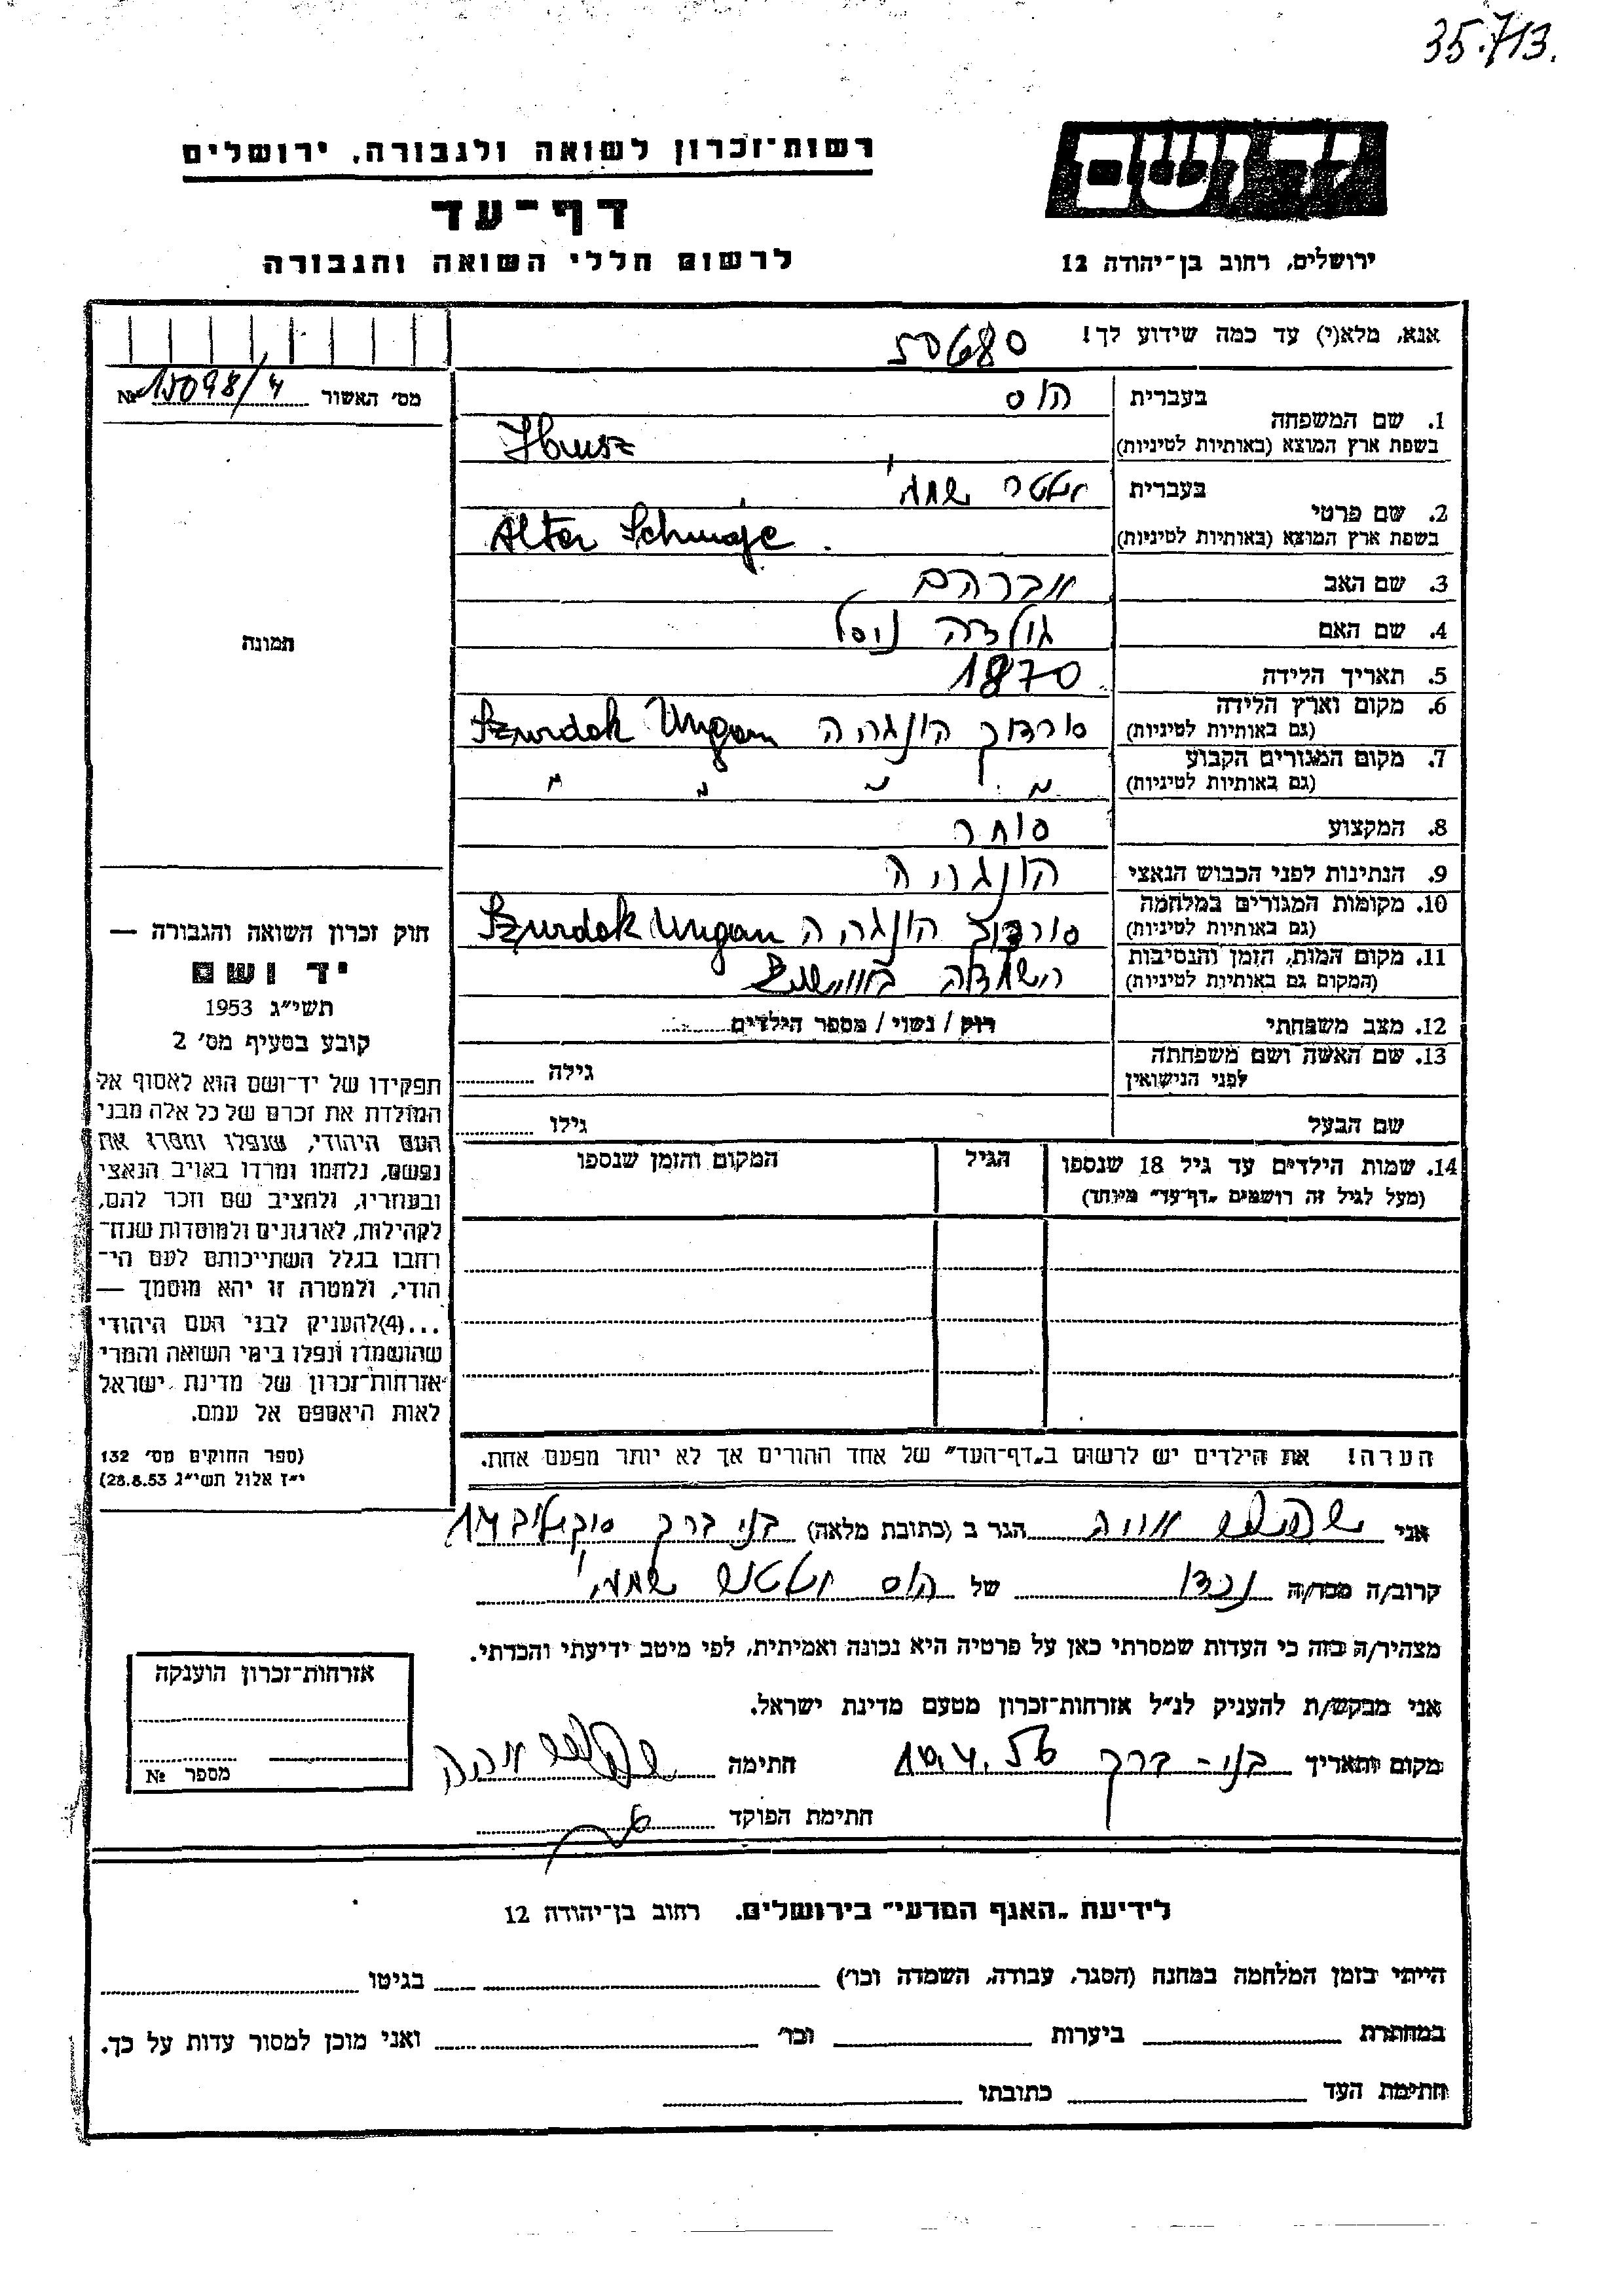 35.713.
יד ושם
רשות־זכרון לשואה ולגבורה, ירושלים
דף־עד
לרשום חללי השואה והגבורה
ירושלים, רחוב בן־יהודה 12
אנא, מלא(י) עד כמה שידוע לך!
50680
מס׳ האשור № 15098/4
1. שם המשפחה
בעברית הוס
בשפת ארץ המוצא (באותיות לטיניות)
2. שם פרטי
בעברית אלטר שמחי
בשפת ארץ המוצא (באותיות לטיניות) Alter
3. שם האב אברהם
4. שם האם גולדה
5. תאריך הלידה 1870
6. מקום וארץ הלידה
(גם באותיות לטיניות) סורדוק הונגריה Szurdok Ungarn
7. מקום המגורים הקבוע
(גם באותיות לטיניות) " " " " "
8. המקצוע סוחר
9. הנתינות לפני הכבוש הנאצי הונגריה
10. מקומות המגורים במלחמה
(גם באותיות לטיניות) סורדוק הונגריה Szurdok Ungarn
11. מקום המות, הזמן והנסיבות
(המקום גם באותיות לטיניות) השמדה באוישוויץ
12. מצב משפחתי רוק / נשוי / מספר הילדים
13. שם האשה ושם משפחתה
לפני הנישואין
גילה
שם הבעל גילו
14. שמות הילדים עד גיל 18 שנספו
(מעל לגיל זה רושמים „דף־עד״ מיוחד)
הגיל
המקום והזמן שנספו
הערה! את הילדים יש לרשום ב„דף־העד״ של אחד ההורים אך לא יותר מפעם אחת.
תמונה
חוק זכרון השואה והגבורה —
יד ושם
תשי״ג 1953
קובע בסעיף מס׳ 2
תפקידו של יד־ושם הוא לאסוף אל
המולדת את זכרם של כל אלה מבני
העם היהודי, שנפלו ומסרו את
נפשם, נלחמו ומרדו באויב הנאצי
ובעוזריו, ולהציב שם וזכר להם,
לקהילות, לארגונים ולמוסדות שנח־
רבו בגלל השתייכותם לעם הי־
הודי, ולמטרה זו יהא מוסמך —
...(4)להעניק לבני העם היהודי
שהושמדו ונפלו בימי השואה והמרי
אזרחות־זכרון של מדינת ישראל
לאות היאספם אל עמם.
(ספר החוקים מס׳ 132
י״ז אלול תשי״ג 28.8.53)
אני הגר ב (כתובת מלאה) בני ברק סוקולוב 14
קרוב/ה מכר/ה נכדו של הוס אלטר שמחי
מצהיר/ה בזה כי העדות שמסרתי כאן על פרטיה היא נכונה ואמיתית, לפי מיטב ידיעתי והכרתי.
אני מבקש/ת להעניק לנ״ל אזרחות־זכרון מטעם מדינת ישראל.
מקום ותאריך בני־ברק 10.4.56 חתימה
חתימת הפוקד
אזרחות־זכרון הוענקה
מספר №
לידיעת „האגף המדעי״ בירושלים. רחוב בן־יהודה 12
הייתי בזמן המלחמה במחנה (הסגר, עבודה, השמדה וכו׳) בגיטו
במחתרת ביערות וכו׳ ואני מוכן למסור עדות על כך.
חתימת העד כתובתו